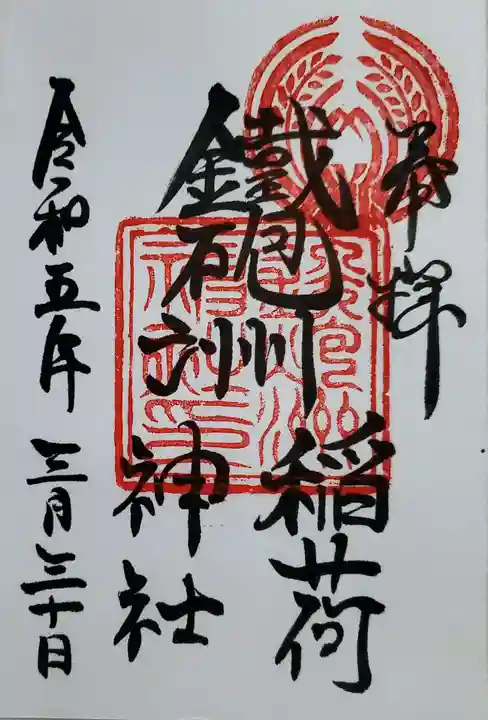 奉拝
鐵砲洲稲荷
神社
令和五年 三月三十日